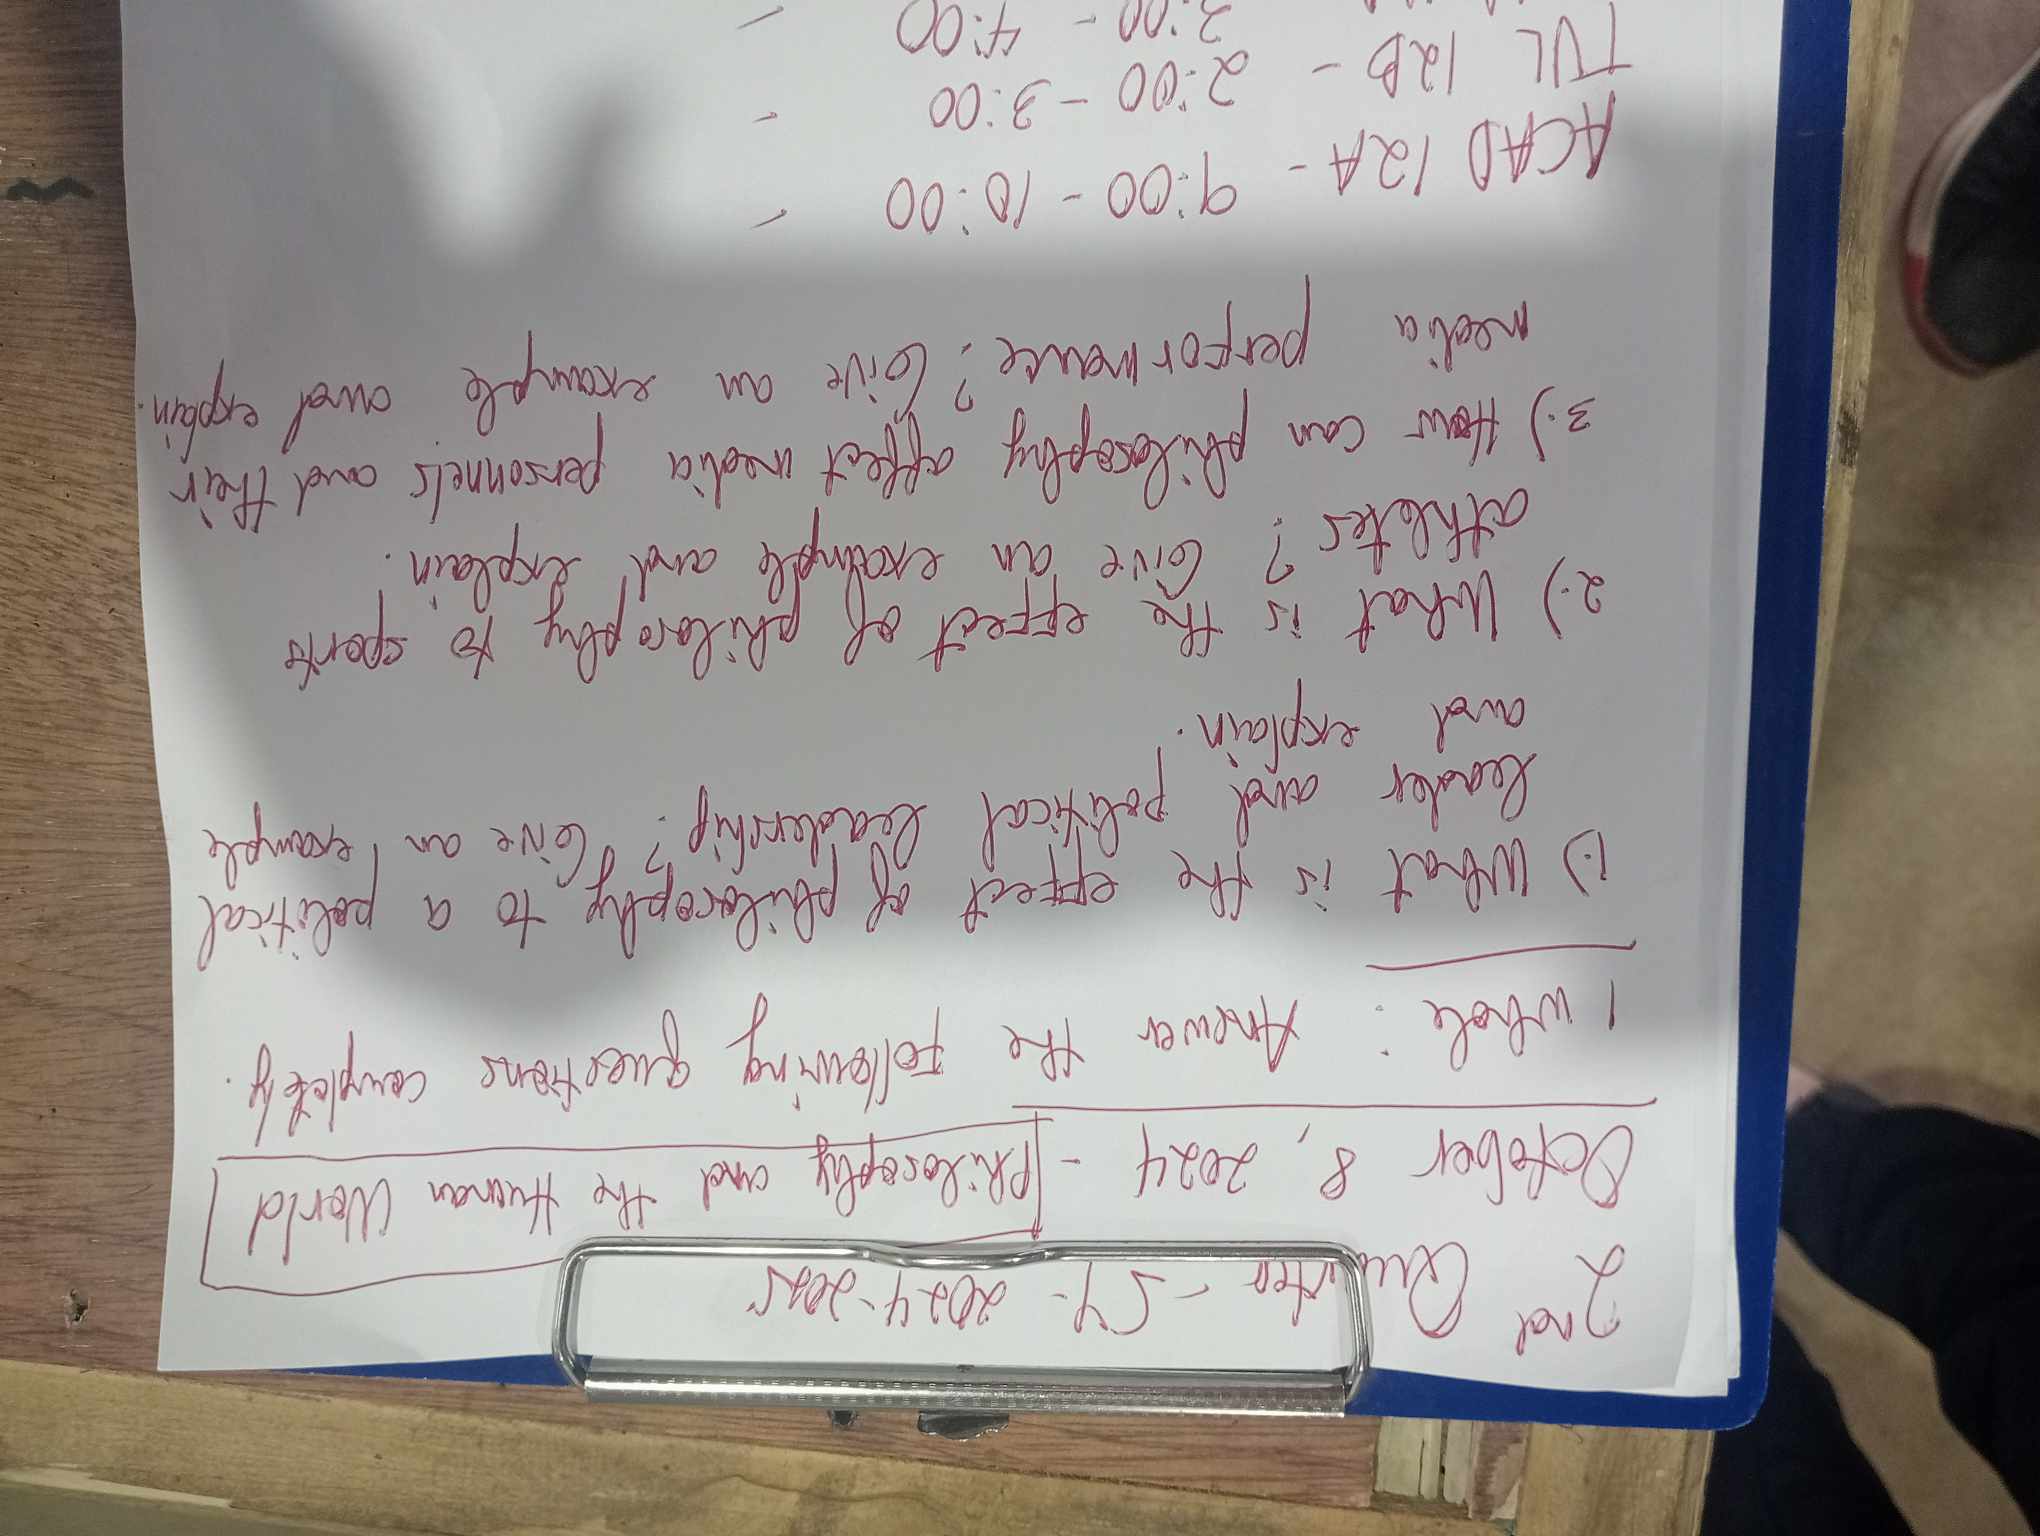 2nd Quarter - SY - 2024-2025
October 8, 2024 - Philosophy and the Human World
1 whole : Answer the following questions completely.
1.) What is the effect of philosophy to a political
leader and political leadership? Give an example
and explain.
2.) What is the effect of philosophy to sports
athletes? Give an example and explain.
3.) How can philosophy affect media personnels and their
media performance? Give an example and explain.
ACAD 12A - 9:00 - 10:00 -
TVL 12B - 2:00 - 3:00 -
3:00 - 4:00 -